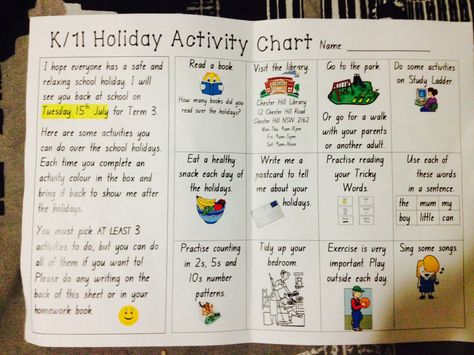 K/1I Holiday Activity Chart Name:
I hope everyone has a safe and
relaxing school holiday. I will
see you back at school on
Tuesday 15th July for Term 3.
Here are some activities you
can do over the school holidays.
Each time you complete an
activity colour in the box and
bring it back to show me after
the holidays.
You must pick AT LEAST 3
activities to do, but you can do
all of them if you want to!
Please do any writing on the
back of this sheet or in your
homework book.
Read a book.
How many books did you
read over the holidays?
Visit the library.
Chester Hill Library
12 Chester Hill Road
Chester Hill NSW 2162
Mon-Thu 9am-8pm
Fri 9am-5pm
Sat 9am-4pm
Go to the park.
Or go for a walk
with your parents
or another adult.
Do some activities
on Study Ladder.
Eat a healthy
snack each day of
the holidays.
Write me a
postcard to tell
me about your
holidays.
Practise reading
your Tricky
Words.
Use each of
these words
in a sentence.
the mum my
boy little can
Practise counting
in 2s, 5s and
10s number
patterns.
Tidy up your
bedroom.
Exercise is very
important. Play
outside each day.
Sing some songs.